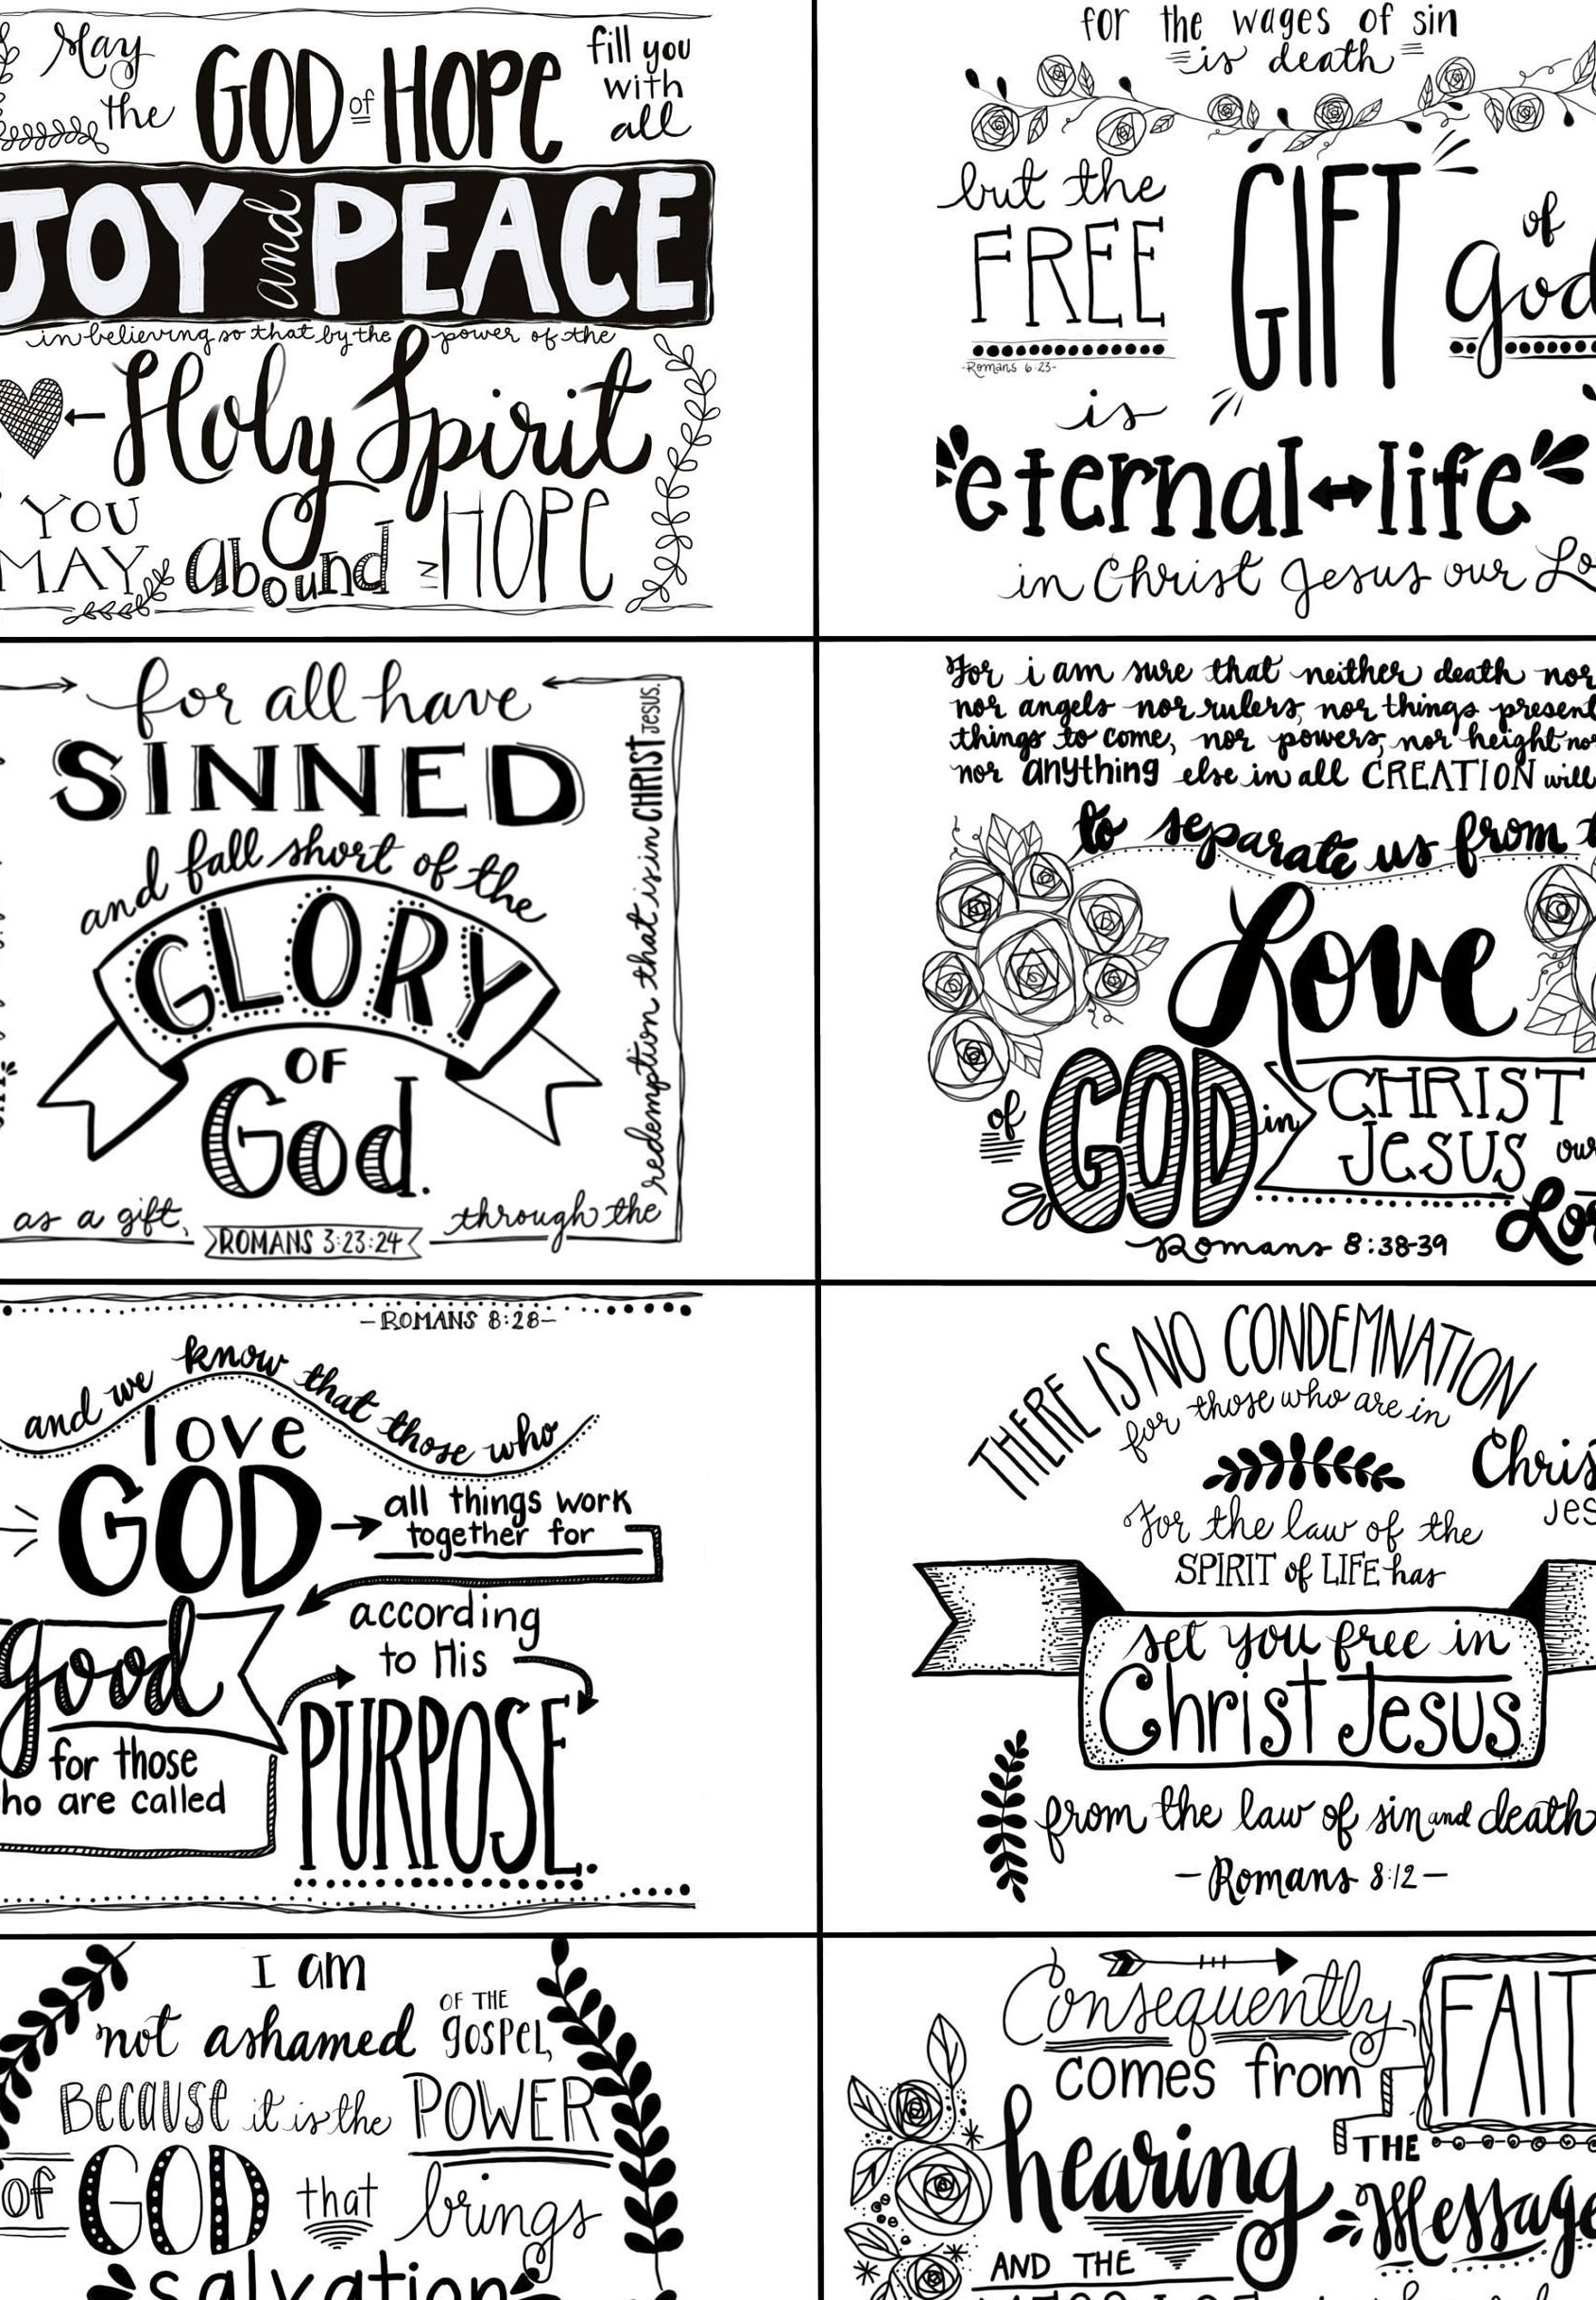 May
the
GOD of HOPE
fill you
with
all
JOY and PEACE
in believing so that by the power of the
Holy Spirit
YOU
MAY abound IN HOPE
for the wages of sin
is death
but the
FREE
GIFT
of
God
-Romans 6:23-
is
eternal life
in Christ Jesus our Lo
for all have
SINNED
and fall short of the
GLORY
OF
God.
as a gift,
through the
redemption that is in CHRIST Jesus.
ROMANS 3:23-24
For i am sure that neither death nor
nor angels nor rulers, nor things present
things to come, nor powers, nor height nor
nor anything else in all CREATION will
to separate us from t
Love
of
GOD
in
CHRIST
Jesus our
Lor
Romans 8:38-39
-ROMANS 8:28-
and we know that those who
love
GOD
all things work
together for
good
for those
ho are called
according
to His
PURPOSE.
THERE IS NO CONDEMNATION
for those who are in
Chris
Jes
For the law of the
SPIRIT of LIFE has
set you free in
Christ Jesus
from the law of sin and death
-Romans 8:12-
I am
not ashamed OF THE
gospel,
Because it is the POWER
of GOD that brings
salvation
Consequently,
FAIT
comes from
hearing
THE
Message
AND THE